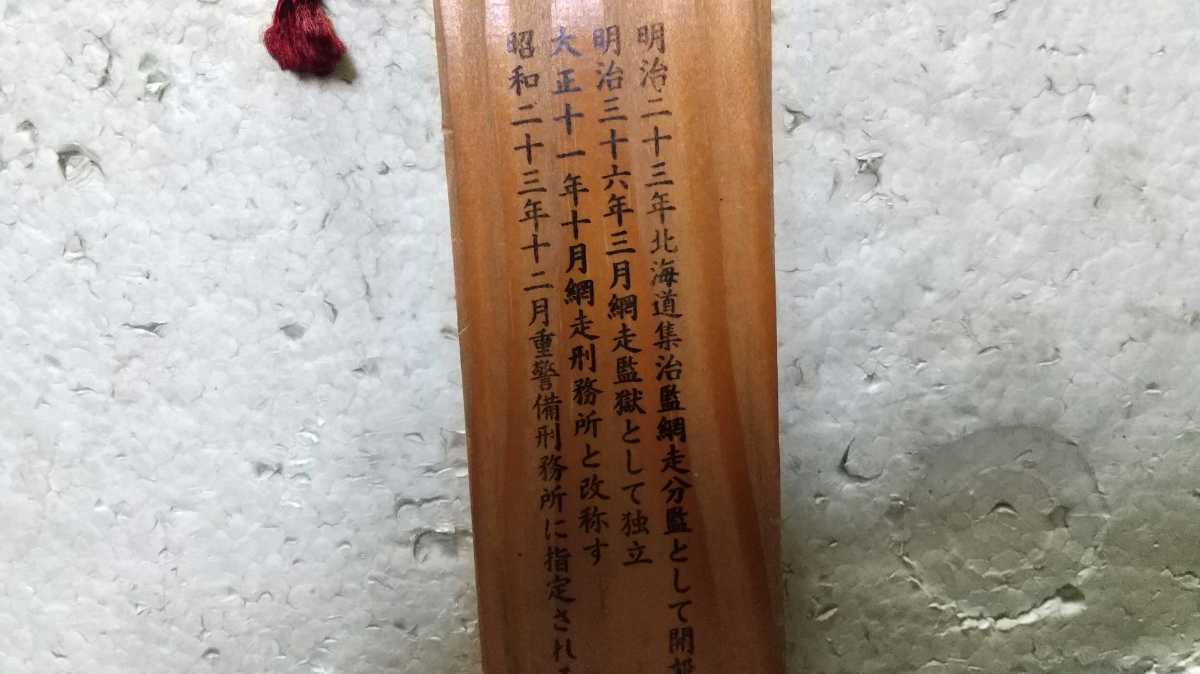 明治二十三年北海道集治監網走分監として開設
明治三十六年三月網走監獄として独立
大正十一年十月網走刑務所と改称す
昭和二十三年十二月重警備刑務所に指定される